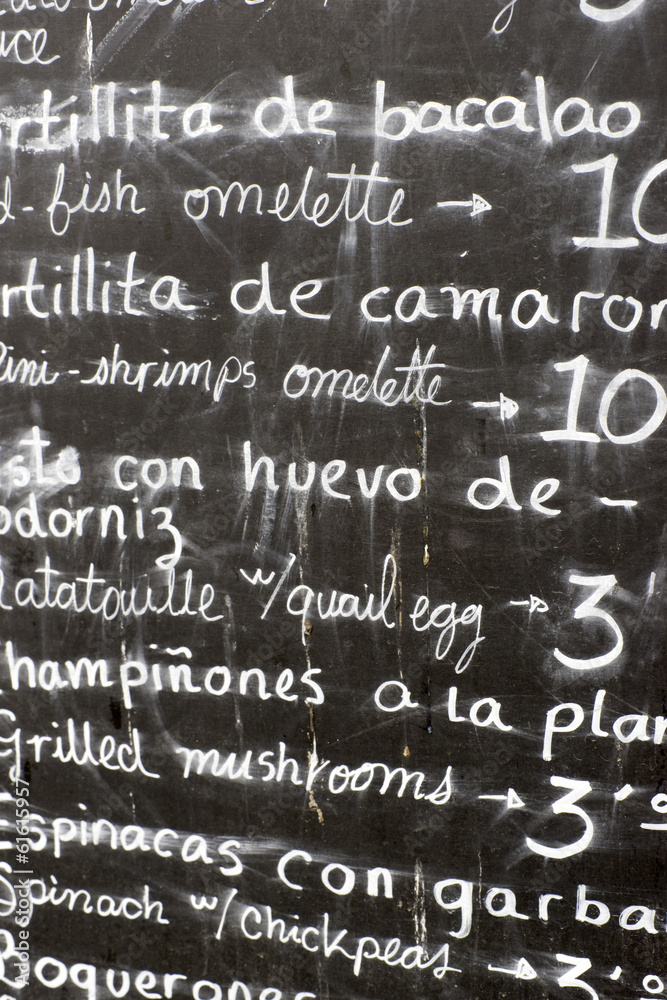 uce
rtillita de bacalao
d-fish omelette → 10
rtillita de camaron
ini-shrimps omelette → 10
sto con huevo de -
odorniz
Ratatouille w/quail egg → 3
Champiñones a la plan
Grilled mushrooms → 3'
Espinacas con garba
Spinach w/chickpeas → 3'
Boquerones
Adobe Stock | #61615957